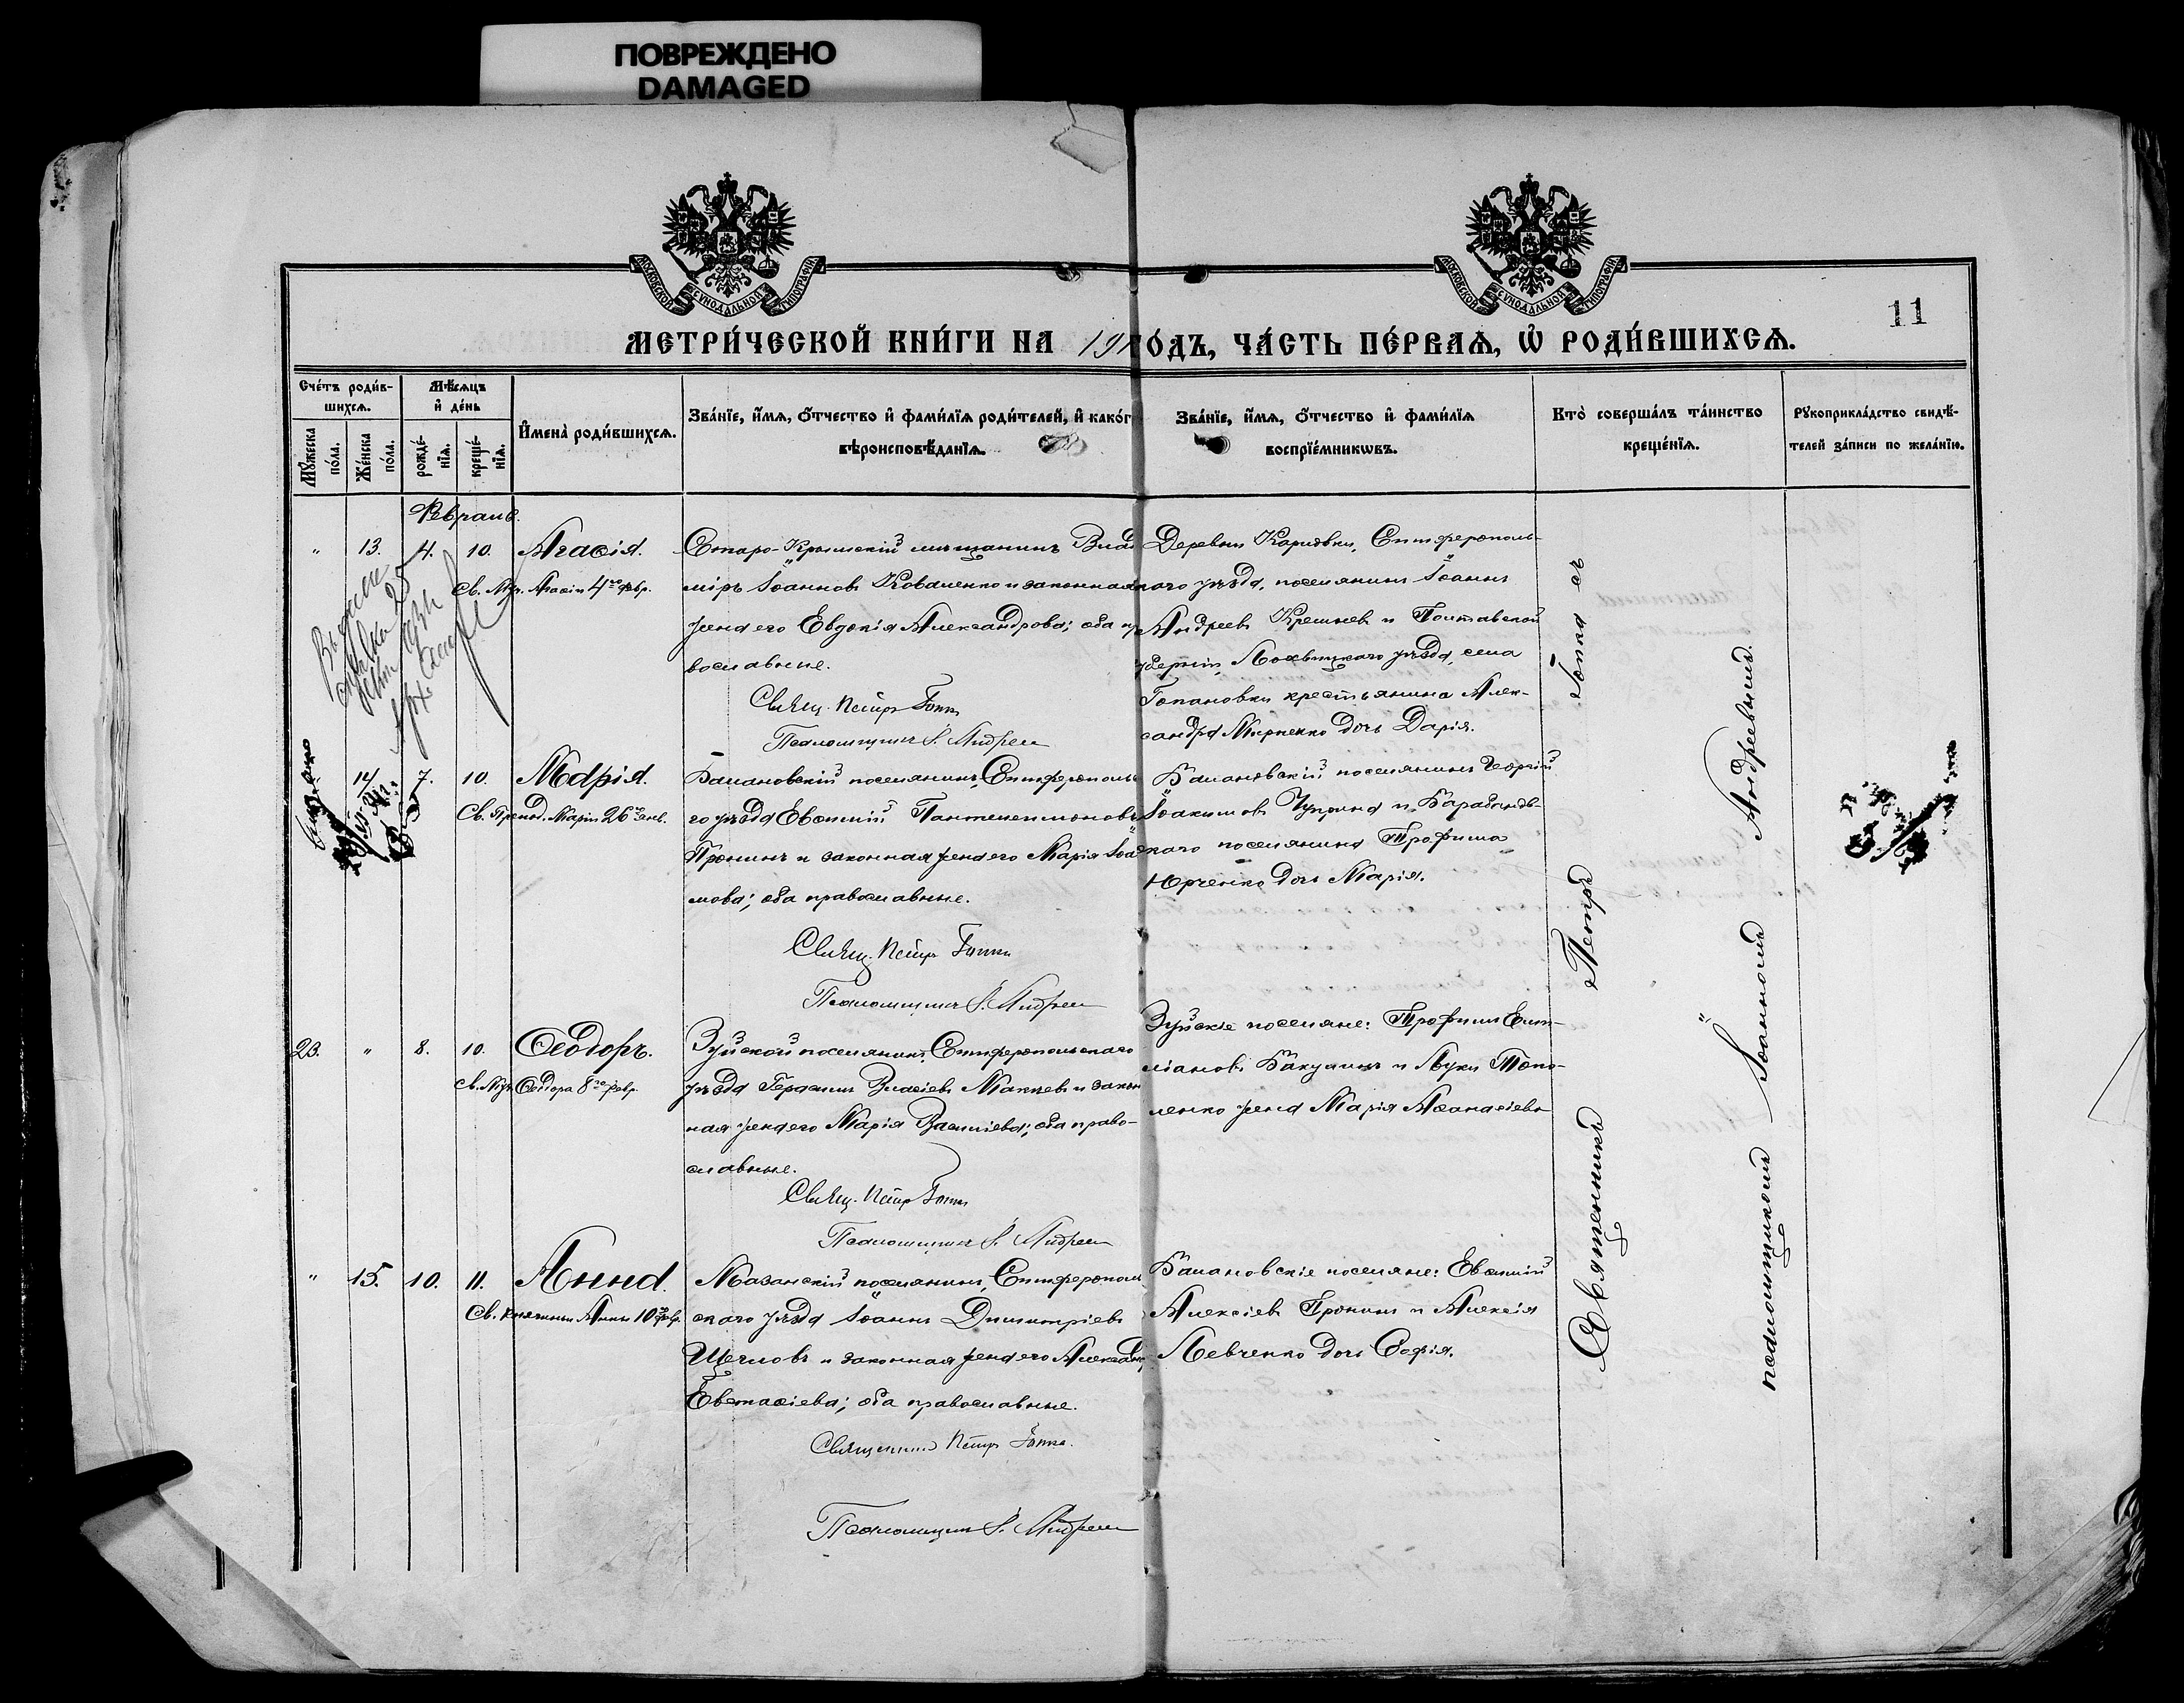 ПОВРЕЖДЕНО
DAMAGED
МОСКОВСКОЙ СѴНОДАЛЬНОЙ ТИПОГРАФІИ
МОСКОВСКОЙ СѴНОДАЛЬНОЙ ТИПОГРАФІИ
11
МЕТРИ́ЧЕСКОЙ КНИ́ГИ НА 19 ГО́ДЪ, ЧА́СТЬ ПЕ́РВАѦ, Ѡ҆ РОДИ́ВШИХСѦ.
Сче́тъ роди́в-
шихсѧ.
Мѣ́сѧцъ
и҆ де́нь
Мꙋ́жеска по́ла.
Же́нска по́ла.
рожде́-
нїѧ.
креще́-
нїѧ.
И҆мена̀ роди́вшихсѧ.
Зва́нїе, и҆́мѧ, ѻ҆́тчество и҆ фами́лїѧ роди́телей, и҆ како́г
вѣроисповѣ́данїѧ.
Зва́нїе, и҆́мѧ, ѻ҆́тчество и҆ фами́лїѧ
воспрїе́мникѡвъ.
Кто̀ соверша́лъ та́инство
креще́нїѧ.
Рꙋкоприкла́дство свидѣ́-
телей за́писи по жела́нїю.
Февраль.
" 13. 4. 10. Агаѳія.
Св. Муч. Агаѳіи 4го февр.
Старо-Крымскій мѣщанинъ Влад
міръ Іоанновъ Коваленко и законная
жена его Евдокія Александрова; оба пр
вославные.
Свящ. Петръ Гоппа
Псаломщикъ І. Андреев
Деревни Каривки, Симферополь-
скаго уѣзда, поселянинъ Іоаннъ
Андреевъ Крешневъ и Полтавской
губерніи, Лохвицкаго уѣзда, села
крестьянина Алек-
сандра дочь Дарія.
14. 7. 10. Марія.
Св. Препод. Маріи 26го янв.
Балановскій поселянинъ, Симферополь
го уѣзда Евѳимій Пантелеимоновъ
Пронинъ и законная жена его Марія Іоа
мова; оба православные.
Свящ. Петръ Гоппа
Псаломщикъ І. Андреев
Балановскій поселянинъ Георгій
Іоакимовъ Чуприна и Карабахов-
скаго поселянина Трофима
Юрченко дочь Марія.
23. " 8. 10. Ѳеодоръ.
Св. Муч. Ѳеодора 8го февр.
Зуйской поселянинъ, Симферопольскаго
уѣзда Герасимъ Власіевъ Макѣевъ и закон
ная жена его Марія Василіева; оба право-
славные.
Свящ. Петръ Гоппа
Псаломщикъ І. Андреев
Зуйскіе поселяне: Трофимъ Еми-
ліановъ Бакулинъ и Луки Топо-
ленко жена Марія Аѳанасіева
" 15. 10. 11. Анна.
Св. Княгини Анны 10го февр.
Мазанскій поселянинъ, Симферополь
скаго уѣзда Іоаннъ Димитріевъ
Щегловъ и законная жена его Александр
Евстаѳіева; оба православные.
Священникъ Петръ Гоппа.
Псаломщикъ І. Андреев
Балановскіе поселяне: Евѳимій
Алексіевъ Пронинъ и Алексія
Левченко дочь Софія.
Священникъ Петръ Гоппа съ
псаломщикомъ Іоанномъ Андреевымъ.